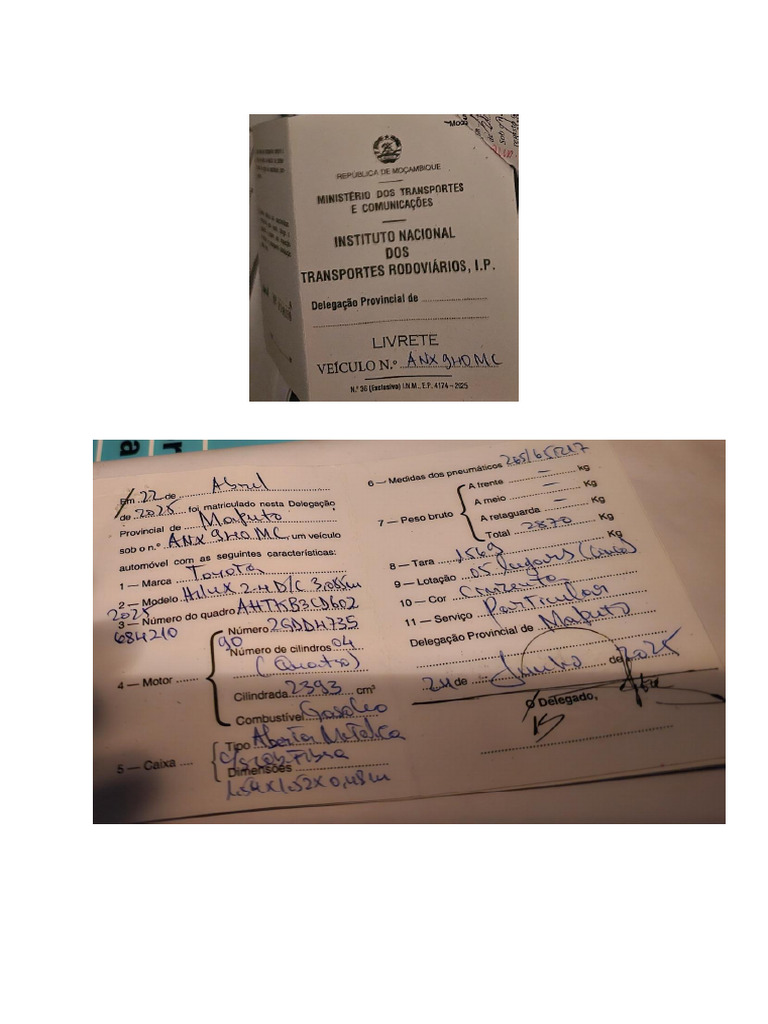 REPÚBLICA DE MOÇAMBIQUE
MINISTÉRIO DOS TRANSPORTES
E COMUNICAÇÕES
INSTITUTO NACIONAL
DOS
TRANSPORTES RODOVIÁRIOS, I.P.
Delegação Provincial de
LIVRETE
VEÍCULO N.º ANX 940 MC
N.º 36 (Exclusivo) I.N.M., E.P. 4174 – 2025
Em 22 de Abril
de 2025 foi matriculado nesta Delegação
Provincial de Maputo
sob o n.º ANX 940 MC, um veículo
automóvel com as seguintes características:
1 — Marca Toyota
2 — Modelo Hilux 2.4 D/C
2025
3 — Número do quadro AHTKB3CD602
684210
4 — Motor
Número 2GDDH735
90
Número de cilindros 04
(Quatro)
Cilindrada 2393 cm³
Combustível Gasoleo
5 — Caixa
Tipo Aberta Metalica
Fibra
Dimensões
1,54X1,52X0,48m
6 — Medidas dos pneumáticos 265/65R17
7 — Peso bruto
A frente — kg
A meio — Kg
A retaguarda — Kg
Total 2870 Kg
8 — Tara 1569 Kg
9 — Lotação 05 lugares (cinco)
10 — Cor Cinzento
11 — Serviço Particular
Delegação Provincial de Maputo
24 de Junho de 2025
O Delegado,